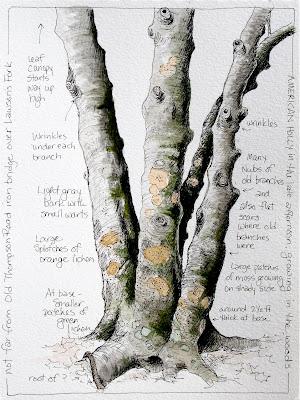 Leaf
Canopy
starts
way up
high
Wrinkles
under each
branch
Light gray
bark with
small warts
Large
Splotches of
orange lichen
At base -
smaller
patches of
green
lichen
root of ?
wrinkles
Many
Nubs of
old branches
and
also flat
scars
where old
branches
were
Large patches
of moss growing
on shady side
around 2½ ft
thick at base
Not far from Old Thompson Road iron bridge over Lawsons Fork
AMERICAN HOLLY in the late afternoon. Growing in the woods